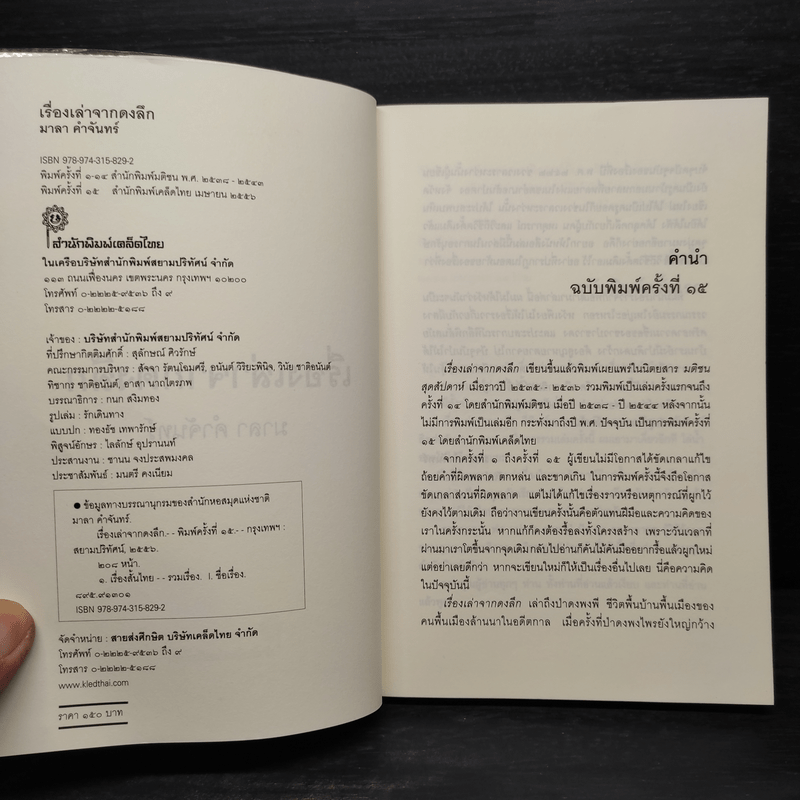 เรื่องเล่าจากดงลึก
มาลา คำจันทร์
ISBN 978-974-315-829-2
พิมพ์ครั้งที่ ๑-๑๔ สำนักพิมพ์มติชน พ.ศ. ๒๕๓๘ - ๒๕๔๓
พิมพ์ครั้งที่ ๑๕ สำนักพิมพ์เคล็ดไทย เมษายน ๒๕๕๖
สำนักพิมพ์เคล็ดไทย
ในเครือบริษัทสำนักพิมพ์สยามปริทัศน์ จำกัด
๑๑๓ ถนนเฟื่องนคร เขตพระนคร กรุงเทพฯ ๑๐๒๐๐
โทรศัพท์ ๐-๒๒๒๕-๙๕๓๖ ถึง ๙
โทรสาร ๐-๒๒๒๒-๕๑๘๘
เจ้าของ : บริษัทสำนักพิมพ์สยามปริทัศน์ จำกัด
ที่ปรึกษากิตติมศักดิ์ : สุลักษณ์ ศิวรักษ์
คณะกรรมการบริหาร : สัจจา รัตนโฉมศรี, อนันต์ วิริยะพินิจ, วินัย ชาติอนันต์
ทิชากร ชาติอนันต์, อาสา นาถไตรภพ
บรรณาธิการ : กนก สงิมทอง
รูปเล่ม : รักเดินทาง
แบบปก : ทองธัช เทพารักษ์
พิสูจน์อักษร : ไลลักษ์ อุปรานนท์
ประสานงาน : ชานน จงประสพมงคล
ประชาสัมพันธ์ : มนตรี คงเนียม
● ข้อมูลทางบรรณานุกรมของสำนักหอสมุดแห่งชาติ
มาลา คำจันทร์.
เรื่องเล่าจากดงลึก.-- พิมพ์ครั้งที่ ๑๕.-- กรุงเทพฯ :
สยามปริทัศน์, ๒๕๕๖.
๒๐๘ หน้า.
๑. เรื่องสั้นไทย -- รวมเรื่อง. I. ชื่อเรื่อง.
๘๙๕.๙๑๓๐๑
ISBN 978-974-315-829-2
จัดจำหน่าย : สายส่งศึกษิต บริษัทเคล็ดไทย จำกัด
โทรศัพท์ ๐-๒๒๒๕-๙๕๓๖ ถึง ๙
โทรสาร ๐-๒๒๒๒-๕๑๘๘
www.kledthai.com
ราคา ๑๕๐ บาท
คำนำ
ฉบับพิมพ์ครั้งที่ ๑๕
เรื่องเล่าจากดงลึก เขียนขึ้นแล้วพิมพ์เผยแพร่ในนิตยสาร มติชน
สุดสัปดาห์ เมื่อราวปี ๒๕๓๕ - ๒๕๓๖ รวมพิมพ์เป็นเล่มครั้งแรกจนถึง
ครั้งที่ ๑๔ โดยสำนักพิมพ์มติชน เมื่อปี ๒๕๓๘ - ปี ๒๕๔๔ หลังจากนั้น
ไม่มีการพิมพ์เป็นเล่มอีก กระทั่งมาถึงปี พ.ศ. ปัจจุบัน เป็นการพิมพ์ครั้งที่
๑๕ โดยสำนักพิมพ์เคล็ดไทย
จากครั้งที่ ๑ ถึงครั้งที่ ๑๕ ผู้เขียนไม่มีโอกาสได้ขัดเกลาแก้ไข
ถ้อยคำที่ผิดพลาด ตกหล่น และขาดเกิน ในการพิมพ์ครั้งนี้จึงถือโอกาส
ขัดเกลาส่วนที่ผิดพลาด แต่ไม่ได้แก้ไขเรื่องราวหรือเหตุการณ์ที่ผูกไว้
ยังคงไว้ตามเดิม ถือว่างานเขียนครั้งนั้นคือตัวแทนฝีมือและความคิดของ
เราในครั้งกระนั้น หากแก้ก็คงต้องรื้อลงทั้งโครงสร้าง เพราะวันเวลาที่
ผ่านมาเราโตขึ้นจากจุดเดิม กลับไปอ่านก็คันไม้คันมืออยากรื้อแล้วผูกใหม่
แต่อย่าเลยดีกว่า หากจะเขียนใหม่ก็ให้เป็นเรื่องอื่นไปเลย นี่คือความคิด
ในปัจจุบันนี้
เรื่องเล่าจากดงลึก เล่าถึงป่าดงพงพี ชีวิตพื้นบ้านพื้นเมืองของ
คนพื้นเมืองล้านนาในอดีตกาล เมื่อครั้งที่ป่าดงพงไพรยังใหญ่กว้าง